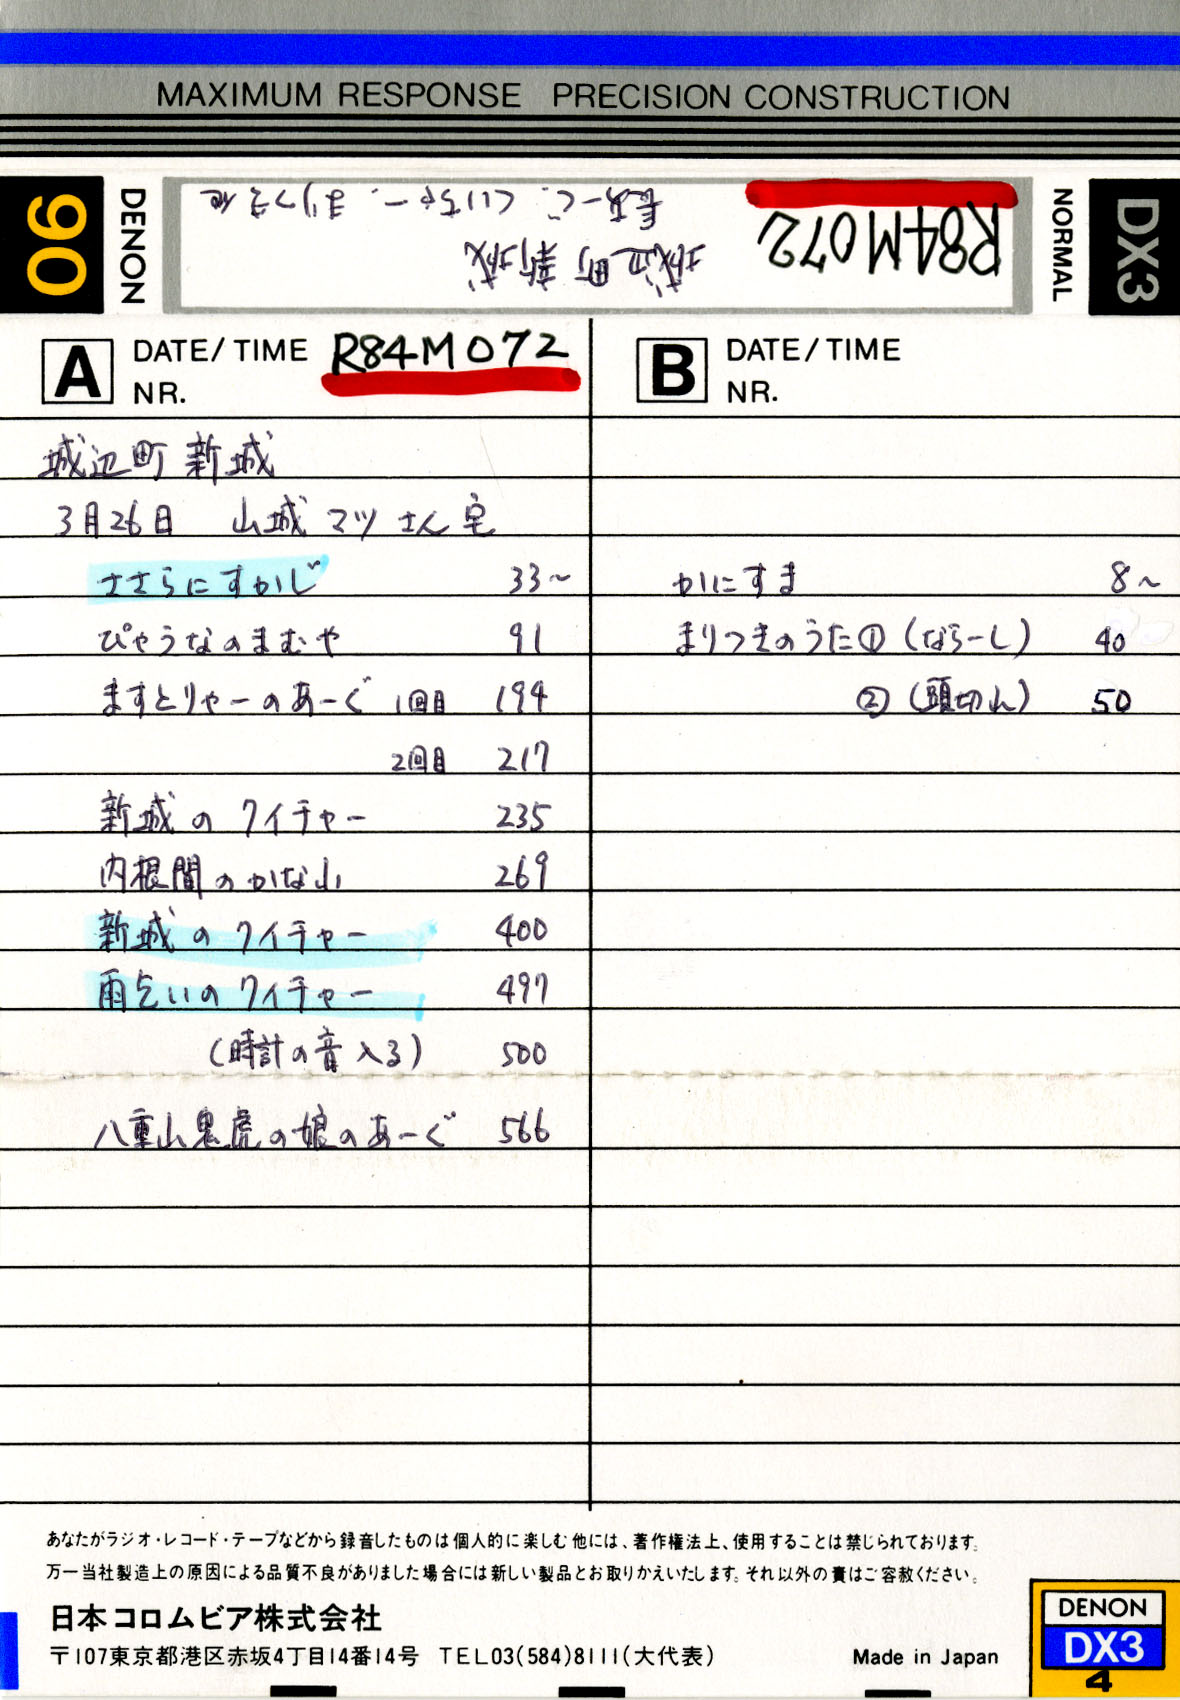 MAXIMUM RESPONSE PRECISION CONSTRUCTION
90
DENON
R84M072
城辺町 新城
長アーぐ、くいちゃー、まりつき 他
NORMAL
DX3
A DATE/TIME R84M072
NR.
城辺町 新城
3月26日 山城マツさん宅
ささらにすかじ 33~
ぴゃうなのまむや 91
ますとりゃーのあーぐ 1回目 194
2回目 217
新城のクイチャー 235
内根間のかな山 269
新城のクイチャー 400
雨乞いのクイチャー 497
(時計の音入る) 500
八重山鬼虎の娘のあーぐ 566
B DATE/TIME
NR.
かにすま 8~
まりつきのうた① (ならーし) 40
② (頭切れ) 50
あなたがラジオ・レコード・テープなどから録音したものは個人的に楽しむ他には、著作権法上、使用することは禁じられております。
万一当社製造上の原因による品質不良がありました場合には新しい製品とお取りかえいたします。それ以外の責はご容赦ください。
日本コロムビア株式会社
〒107東京都港区赤坂4丁目14番14号 TEL03(584)8111(大代表)
Made in Japan
DENON
DX3
4